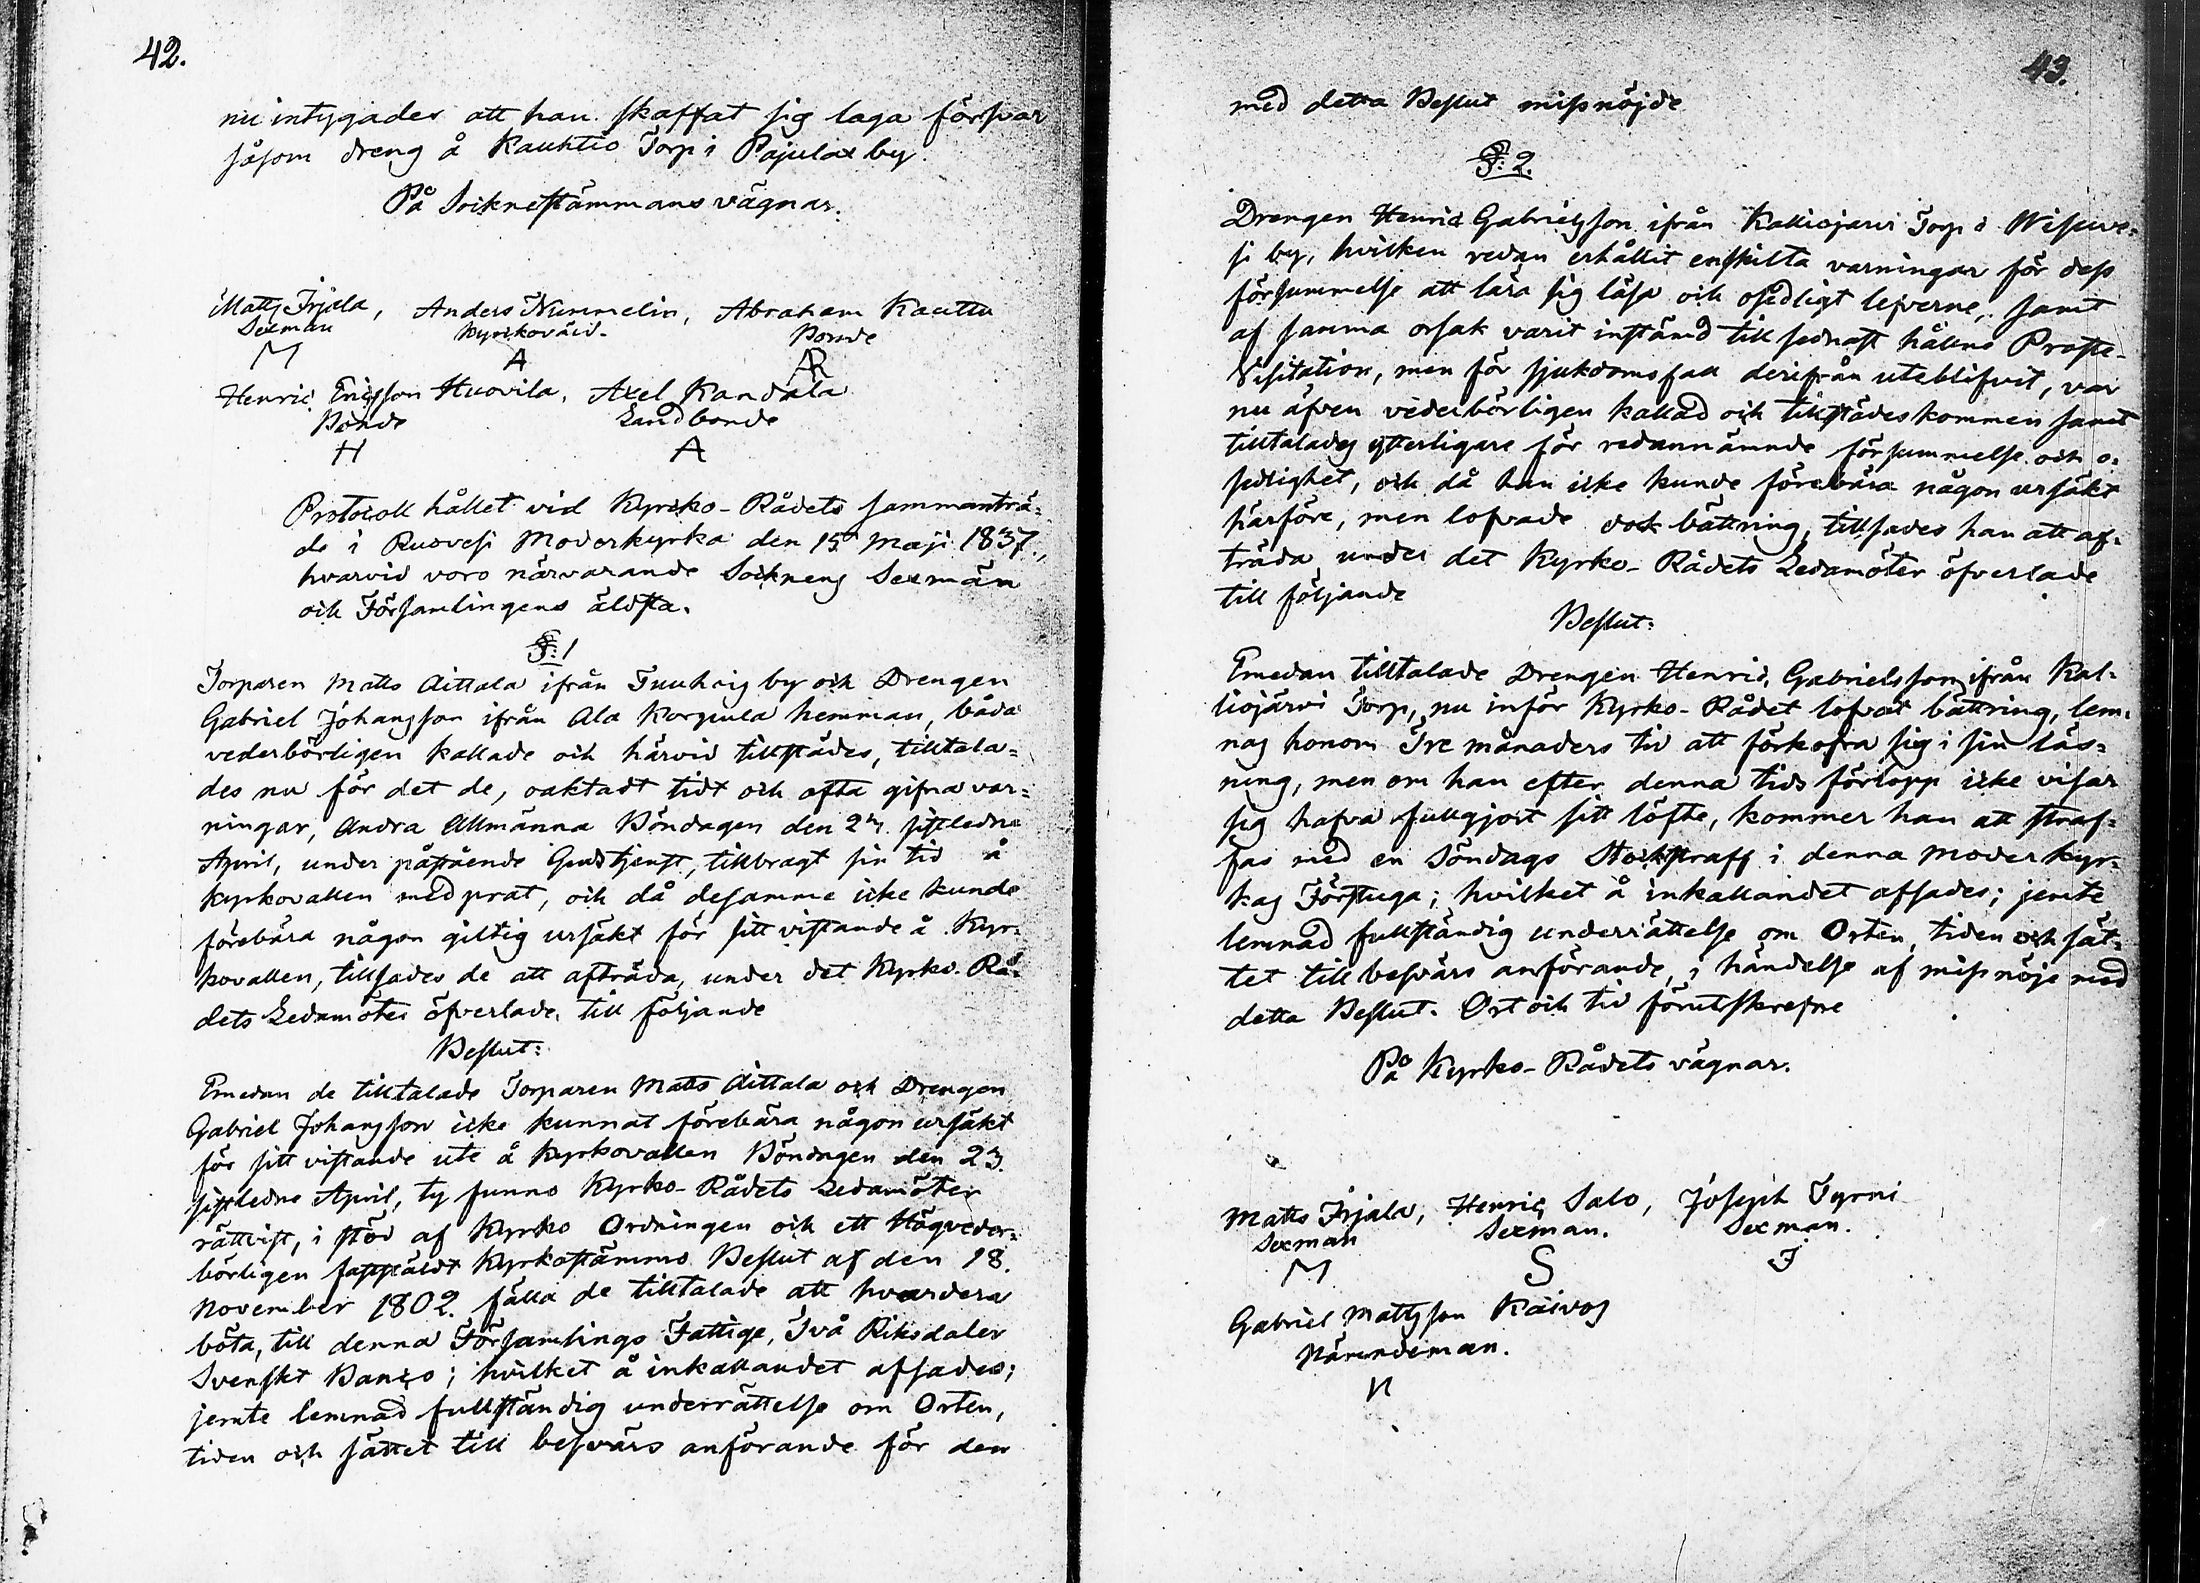 42.
nu intygades att han skaffat sig laga försvar
såsom dreng å Kauhtio Torp i Pajulax by.
På Socknestämmans vägnar.
Matts Irjala, Anders Nummelin, Abraham Kauttu
Sexman Kyrkovärd. Bonde
M A AR
Henric Ericsson Huovila, Axel Kandala
Bonde Landbonde
H A
Protocoll hållet vid Kyrcko-Rådets sammanträ-
de i Ruovesi Moderkyrka den 15 Maji 1837.,
hvarvid voro närvarande Socknens Sexmän
och Församlingens äldsta.
§: 1
Torparen Matts Aittala ifrån Tuuhoig by och Drengen
Gabriel Johansson ifrån Ala Korpula hemman, båda
vederbörligen kallade och härvid tillstädes, tilltala-
des nu för det de, oaktadt tidt och ofta gifna var-
ningar, Andra Allmänna Böndagen den 23. sistledne
April, under påstående Gudstjenst, tillbragt sin tid å
kyrkovallen med prat, och då desamme icke kunde
förebära någon giltig ursäkt för sitt vistande å Kyr-
kovallen, tillsades de att afträda, under det Kyrko-Rå-
dets Ledamöter öfverlade till följande
Beslut:
Emedan de tilltalade Torparen Matts Aittala och Drengen
Gabriel Johansson icke kunnat förebära någon ursäkt
för sitt vistande ute å Kyrkovallen Böndagen den 23.
sistledne April, ty funno Kyrko-Rådets Ledamöter
rättvist, i stöd af Kyrko Ordningen och ett Högveder-
börligen fastställdt Kyrkostämmo Beslut af den 18.
November 1802. fälla de tilltalade att hvardera
böta, till denna Församlings Fattige, Två Riksdaler
Svenskt Banco; hvilket å inkallandet afsades;
jemte lemnad fullständig underrättelse om Orten,
tiden och sättet till besvärs anförande för den
43.
med detta Beslut missnöjde
§: 2.
Drengen Henric Gabrielsson ifrån Kalliojärvi Torp i Wisuve-
si by, hvilken redan erhållit enskilta varningar för dess
försummelse att lära sig läsa och osedligt lefverne, samt
af samma orsak varit instämd till sednast hållne Proste-
Visitation, men för sjukdomsfall derifrån uteblifvit, var
nu äfven vederbörligen kallad och tillstädeskommen samt
tilltalades ytterligare för redannämnde försummelse och o-
sedlighet, och då han icke kunde förebära någon ursäkt
härföre, men lofvade dock bättring, tillsades han att af-
träda, under det Kyrko-Rådets Ledamöter öfverlade
till följande
Beslut:
Emedan tilltalade Drengen Henric Gabrielsson ifrån Kal-
liojärvi Torp, nu inför Kyrko-Rådet lofvat bättring, lem-
nas honom Tre månaders tid att förkofra sig i sin läs-
ning, men om han efter denna tids förlopp icke visar
sig hafva fullgjort sitt löfte, kommer han att straf-
fas med en Söndags Stockstraff i denna Moderkyr-
kas Förstuga; hvilket å inkallandet afsades; jemte
lemnad fullständig underrättelse om Orten, tiden och sät-
tet till besvärs anförande, i händelse af missnöje med
detta Beslut. Ort och tid förutskrefne
På Kyrko-Rådets vägnar.
Matts Irjala, Henric Salo, Joseph Tyrni
Sexman Sexman. Sexman.
M S J
Gabriel Mattsson Käivos
Nämndeman.
N